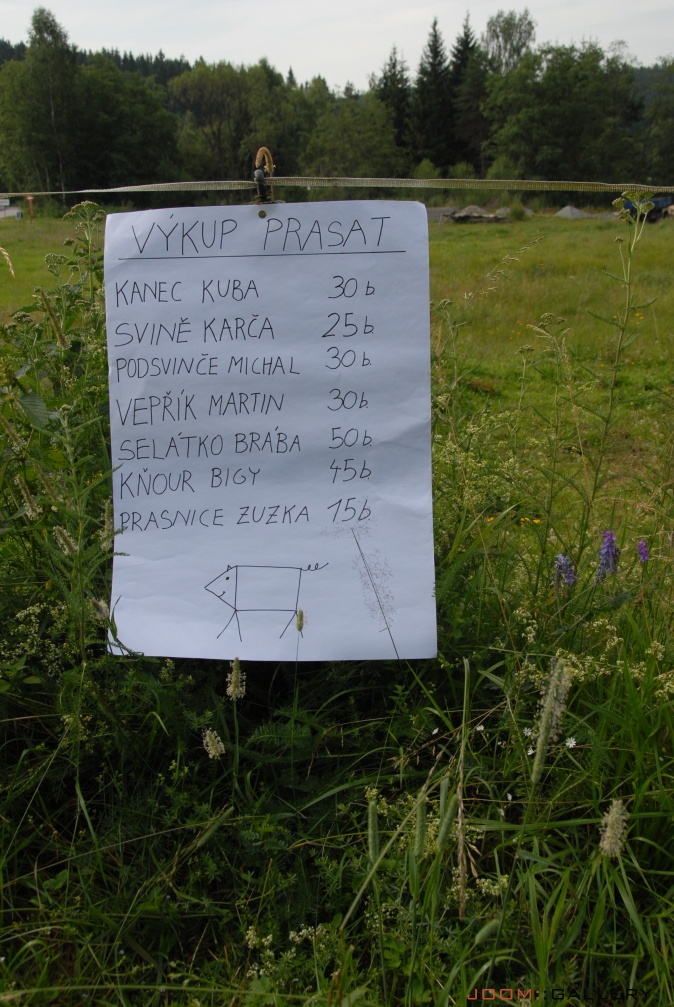 VÝKUP PRASAT
KANEC KUBA 30 b
SVINĚ KARČA 25 b.
PODSVINČE MICHAL 30 b.
VEPŘÍK MARTIN 30 b.
SELÁTKO BRÁBA 50 b.
KŇOUR BIGY 45 b.
PRASNICE ZUZKA 15 b.
JOOM::GALLERY